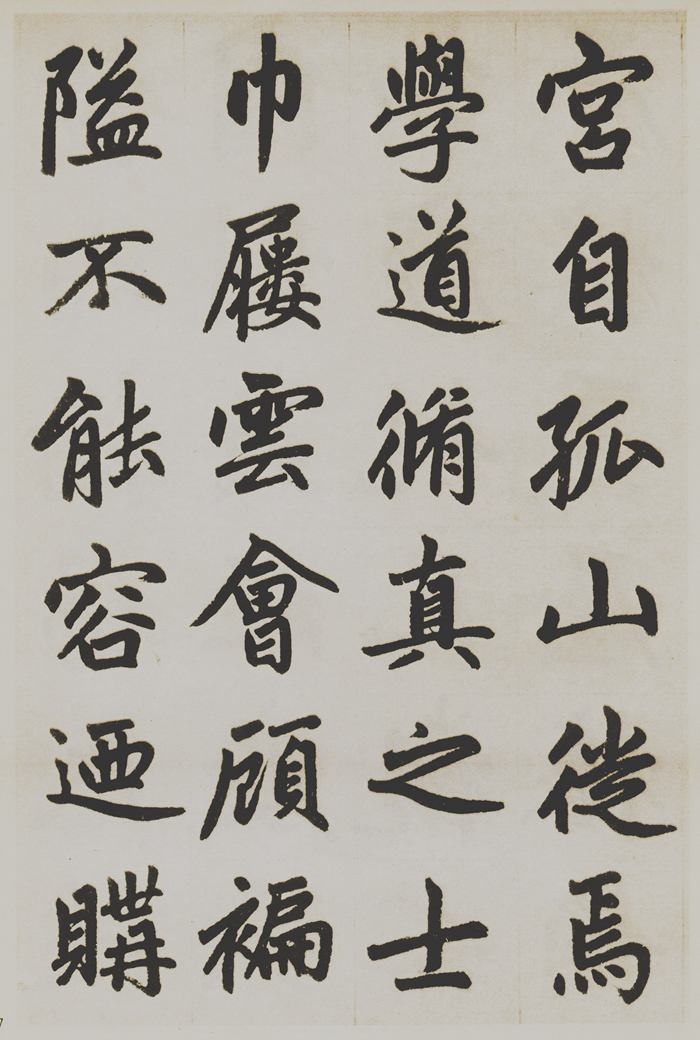 宮自孤山徙焉
學道脩真之士
巾屨雲會顧褊
隘不能容迺購